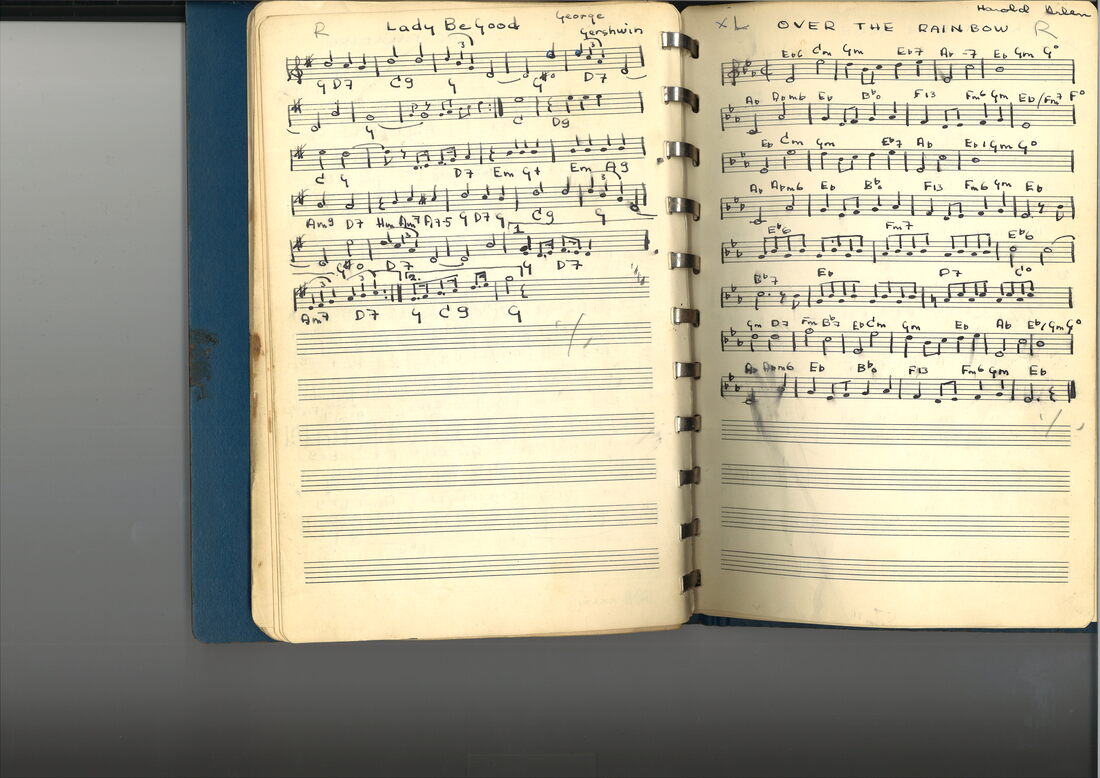 R Lady Be Good George
Gershwin
G D7 C9 G G#o D7
G C D9
C G D7 Em G+ Em A9
Am9 D7 Hm Am7 A7-5 G D7 G 1. C9 G
G#o D7 G D7
2.
Am7 D7 G C9 G
XL OVER THE RAINBOW R Harold Arlen
Eb6 Cm Gm Eb7 Ab -7 Eb Gm Go
Ab Abm6 Eb Bbo F13 Fm6 Gm Eb/Fm7 Fo
Eb Cm Gm Eb7 Ab Eb Gm Go
Ab Abm6 Eb Bbo F13 Fm6 Gm Eb
Eb6 Fm7 Eb6
Bb7 Eb D7 Co
Gm D7 Fm Bb7 Eb Cm Gm Eb Ab Eb/Gm Go
Ab Abm6 Eb Bbo F13 Fm6 Gm Eb